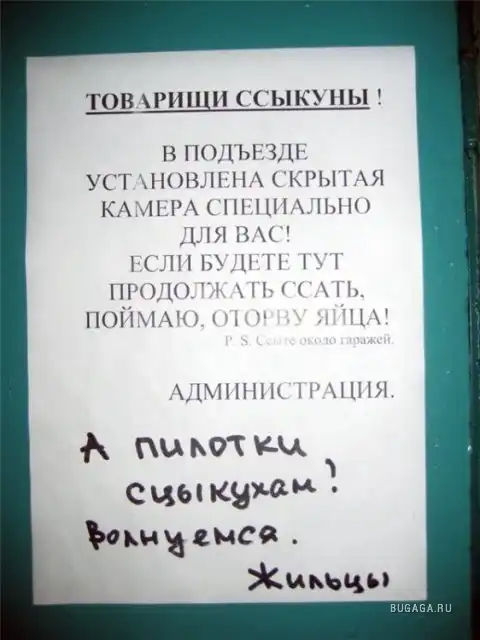 ТОВАРИЩИ ССЫКУНЫ !
В ПОДЪЕЗДЕ
УСТАНОВЛЕНА СКРЫТАЯ
КАМЕРА СПЕЦИАЛЬНО
ДЛЯ ВАС!
ЕСЛИ БУДЕТЕ ТУТ
ПРОДОЛЖАТЬ ССАТЬ,
ПОЙМАЮ, ОТОРВУ ЯЙЦА!
P. S. Ссыте около гаражей.
АДМИНИСТРАЦИЯ.
А пилотки
сцыкухам?
Волнуемся.
Жильцы
BUGAGA.RU